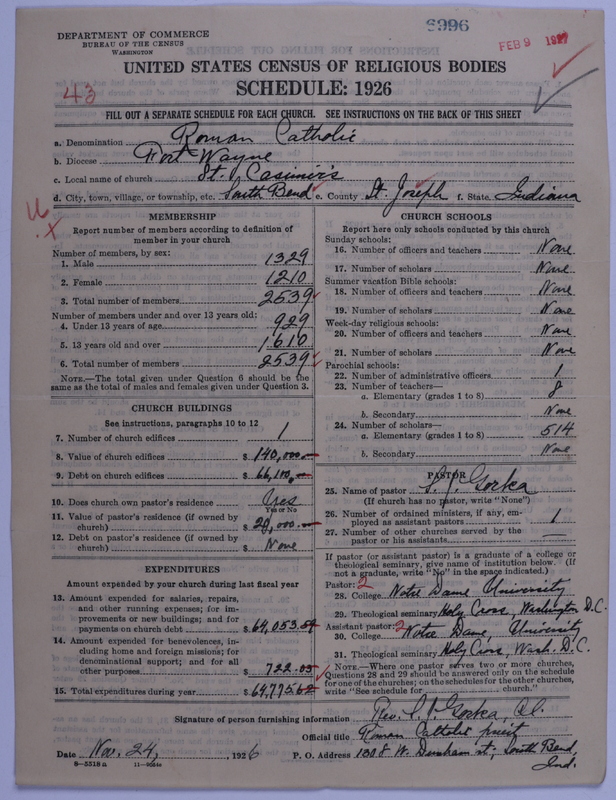 5996
DEPARTMENT OF COMMERCE
BUREAU OF THE CENSUS
WASHINGTON
FEB 9 1927
UNITED STATES CENSUS OF RELIGIOUS BODIES
SCHEDULE: 1926
43
FILL OUT A SEPARATE SCHEDULE FOR EACH CHURCH. SEE INSTRUCTIONS ON THE BACK OF THIS SHEET
a. Denomination Roman Catholic
b. Diocese Fort Wayne
c. Local name of church St. Casimir's
d. City, town, village, or township, etc. South Bend e. County St. Joseph f. State Indiana
MEMBERSHIP
Report number of members according to definition of
member in your church
Number of members, by sex:
1. Male 1329
2. Female 1210
3. Total number of members 2539
Number of members under and over 13 years old:
4. Under 13 years of age 929
5. 13 years old and over 1610
6. Total number of members 2539
NOTE.—The total given under Question 6 should be the
same as the total of males and females given under Question 3.
CHURCH BUILDINGS
See instructions, paragraphs 10 to 12
7. Number of church edifices 1
8. Value of church edifices $ 140,000.
9. Debt on church edifices $ 66,100.
10. Does church own pastor's residence Yes
Yes or No
11. Value of pastor's residence (if owned by
church) $ 20,000.
12. Debt on pastor's residence (if owned by
church) $ None
EXPENDITURES
Amount expended by your church during last fiscal year
13. Amount expended for salaries, repairs,
and other running expenses; for im-
provements or new buildings; and for
payments on church debt $ 64,053.57
14. Amount expended for benevolences, in-
cluding home and foreign missions; for
denominational support; and for all
other purposes $ 722.05
15. Total expenditures during year $ 64,775.62
CHURCH SCHOOLS
Report here only schools conducted by this church
Sunday schools:
16. Number of officers and teachers None
17. Number of scholars None
Summer vacation Bible schools:
18. Number of officers and teachers None
19. Number of scholars None
Week-day religious schools:
20. Number of officers and teachers None
21. Number of scholars None
Parochial schools:
22. Number of administrative officers 1
23. Number of teachers—
a. Elementary (grades 1 to 8) 8
b. Secondary None
24. Number of scholars—
a. Elementary (grades 1 to 8) 514
b. Secondary None
PASTOR
25. Name of pastor S. J. Gorka
(If church has no pastor, write "None")
26. Number of ordained ministers, if any, em-
ployed as assistant pastors 1
27. Number of other churches served by the
pastor or his assistants —
If pastor (or assistant pastor) is a graduate of a college or
theological seminary, give name of institution below. (If
not a graduate, write "No" in the space indicated.)
Pastor: 2
28. College Notre Dame University
29. Theological seminary Holy Cross, Washington D.C.
Assistant pastor: 2
30. College Notre Dame, University
31. Theological seminary Holy Cross, Wash. D.C.
NOTE.—Where one pastor serves two or more churches,
Questions 28 and 29 should be answered only on the schedule
for one of the churches; on the schedules for the other churches,
write "See schedule for church."
Signature of person furnishing information Rev. S. J. Gorka,
Official title Roman Catholic priest
Date Nov. 24, 1926 P. O. Address 1308 W. Dunham st, South Bend,
Ind.
8—5518a 11—9644a